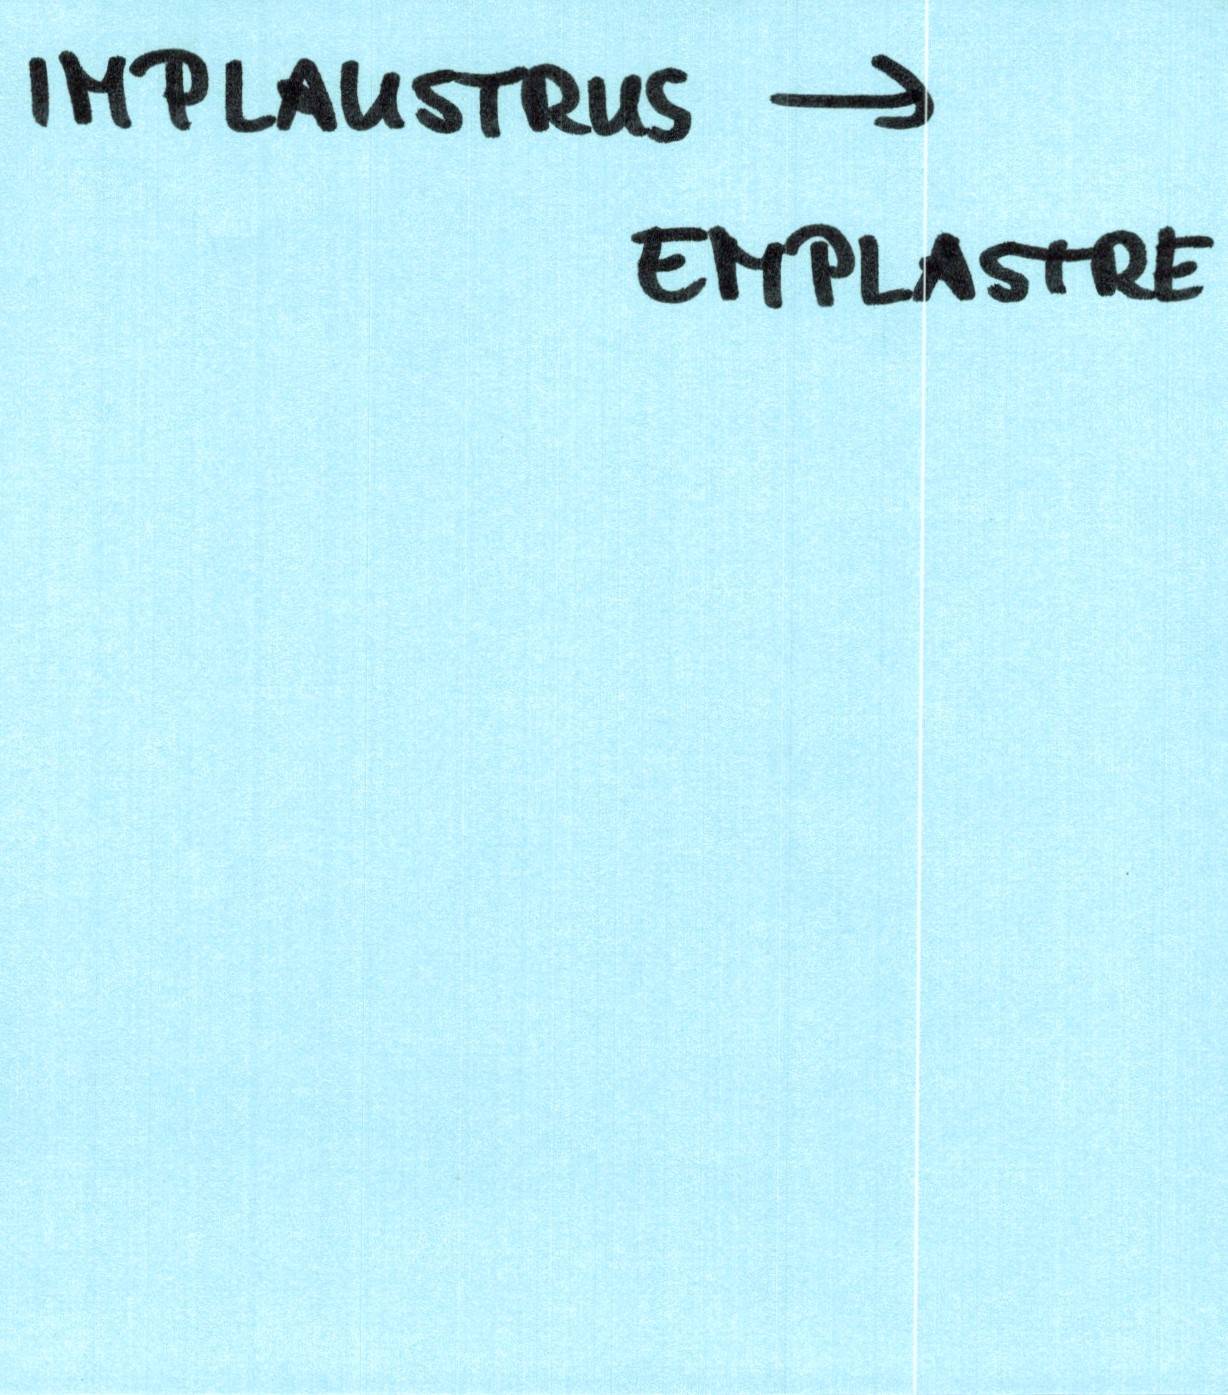 IMPLAUSTRUS →
EMPLASTRE